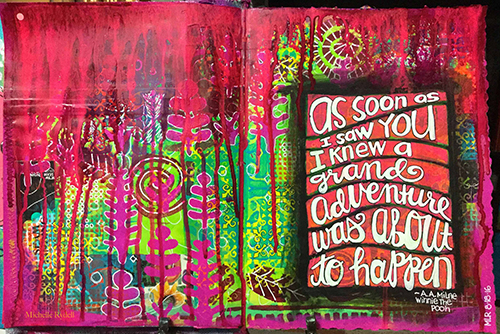 as soon as
I saw YOU
I knew a
grand
adventure
was about
to happen
- A.A. Milne
Winnie The
Pooh
Michelle Rydell
MLR 8·18·16